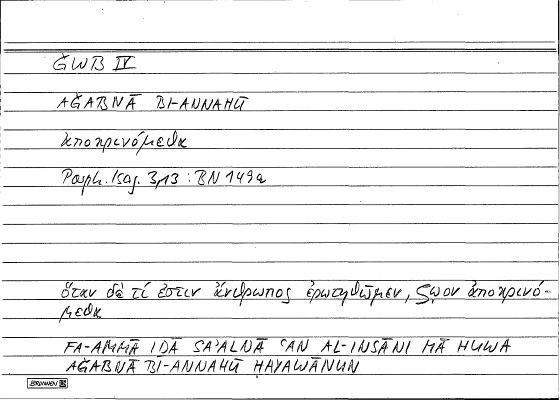 ǦWB IV
AǦABNĀ BI-ANNAHŪ
ἀποκρινόμεθα
Porph. Isag. 3,13 : BN 149a
ὅταν δὲ τί ἐστιν ἄνθρωπος ἐρωτηθῶμεν, ζῷον ἀποκρινό-
μεθα
FA-AMMĀ IḎĀ SAʾALNĀ ʿAN AL-INSĀNI MĀ HUWA
AǦABNĀ BI-ANNAHŪ ḤAYAWĀNUN
BRUNNEN